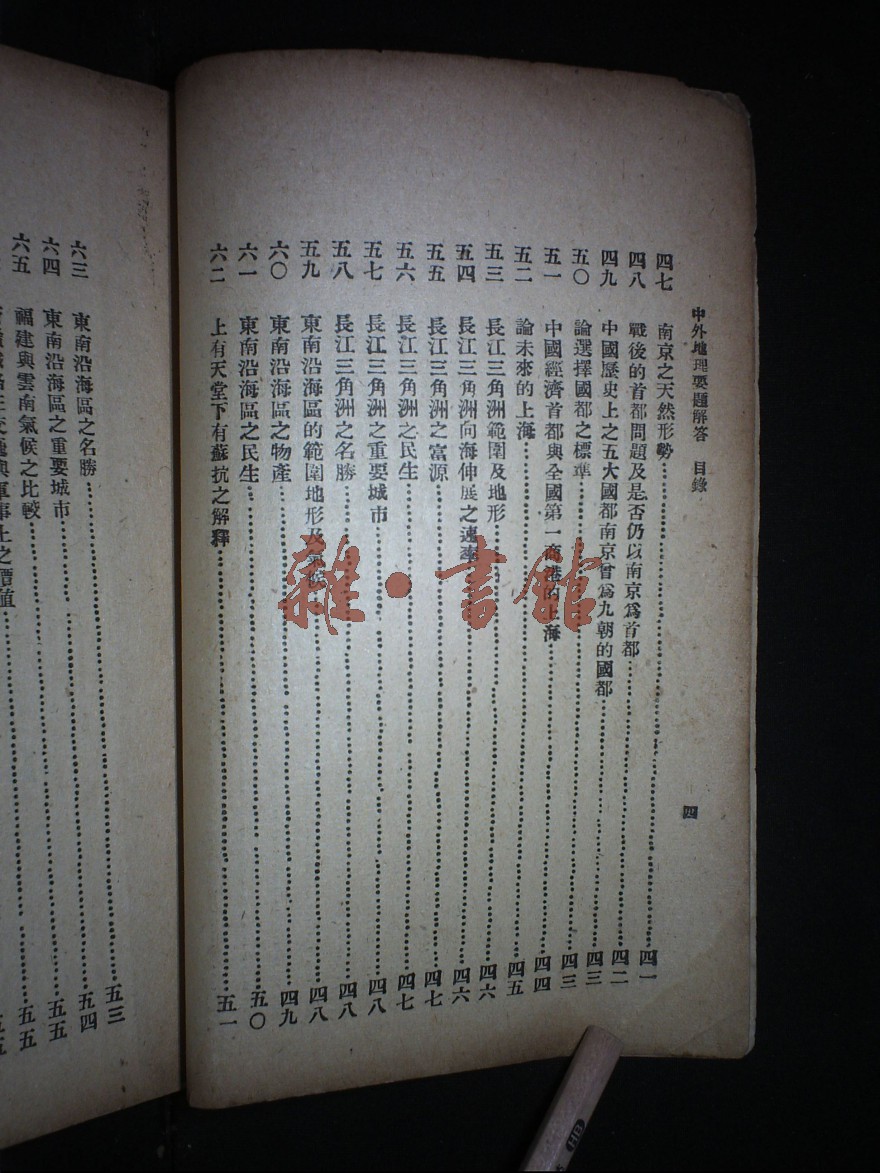 中外地理要題解答 目錄
四
四七 南京之天然形勢 四一
四八 戰後的首都問題及是否仍以南京爲首都 四二
四九 中國歷史上之五大國都南京曾爲九朝的國都 四三
五〇 論選擇國都之標準 四三
五一 中國經濟首都與全國第一商港的上海 四四
五二 論未來的上海 四五
五三 長江三角洲範圍及地形 四六
五四 長江三角洲向海伸展之速率 四六
五五 長江三角洲之富源 四七
五六 長江三角洲之民生 四七
五七 長江三角洲之重要城市 四八
五八 長江三角洲之名勝 四八
五九 東南沿海區的範圍地形及氣候 四八
六〇 東南沿海區之物產 四九
六一 東南沿海區之民生 五〇
六二 上有天堂下有蘇抗之解釋 五一
六三 東南沿海區之名勝 五三
六四 東南沿海區之重要城市 五四
六五 福建與雲南氣候之比較 五五
雜·書館
HB